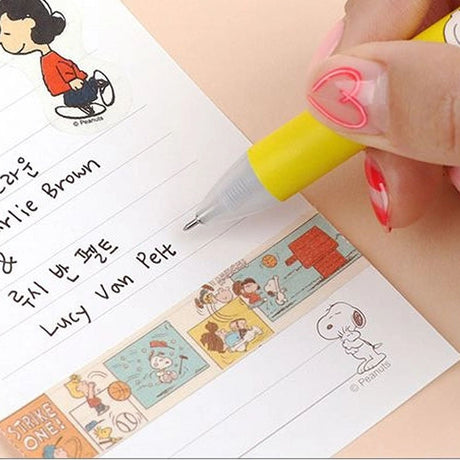 © Peanuts
라운
arlie Brown
&
루시 반 펠트
Lucy Van Pelt
STRIKE
ONE!
© Peanuts